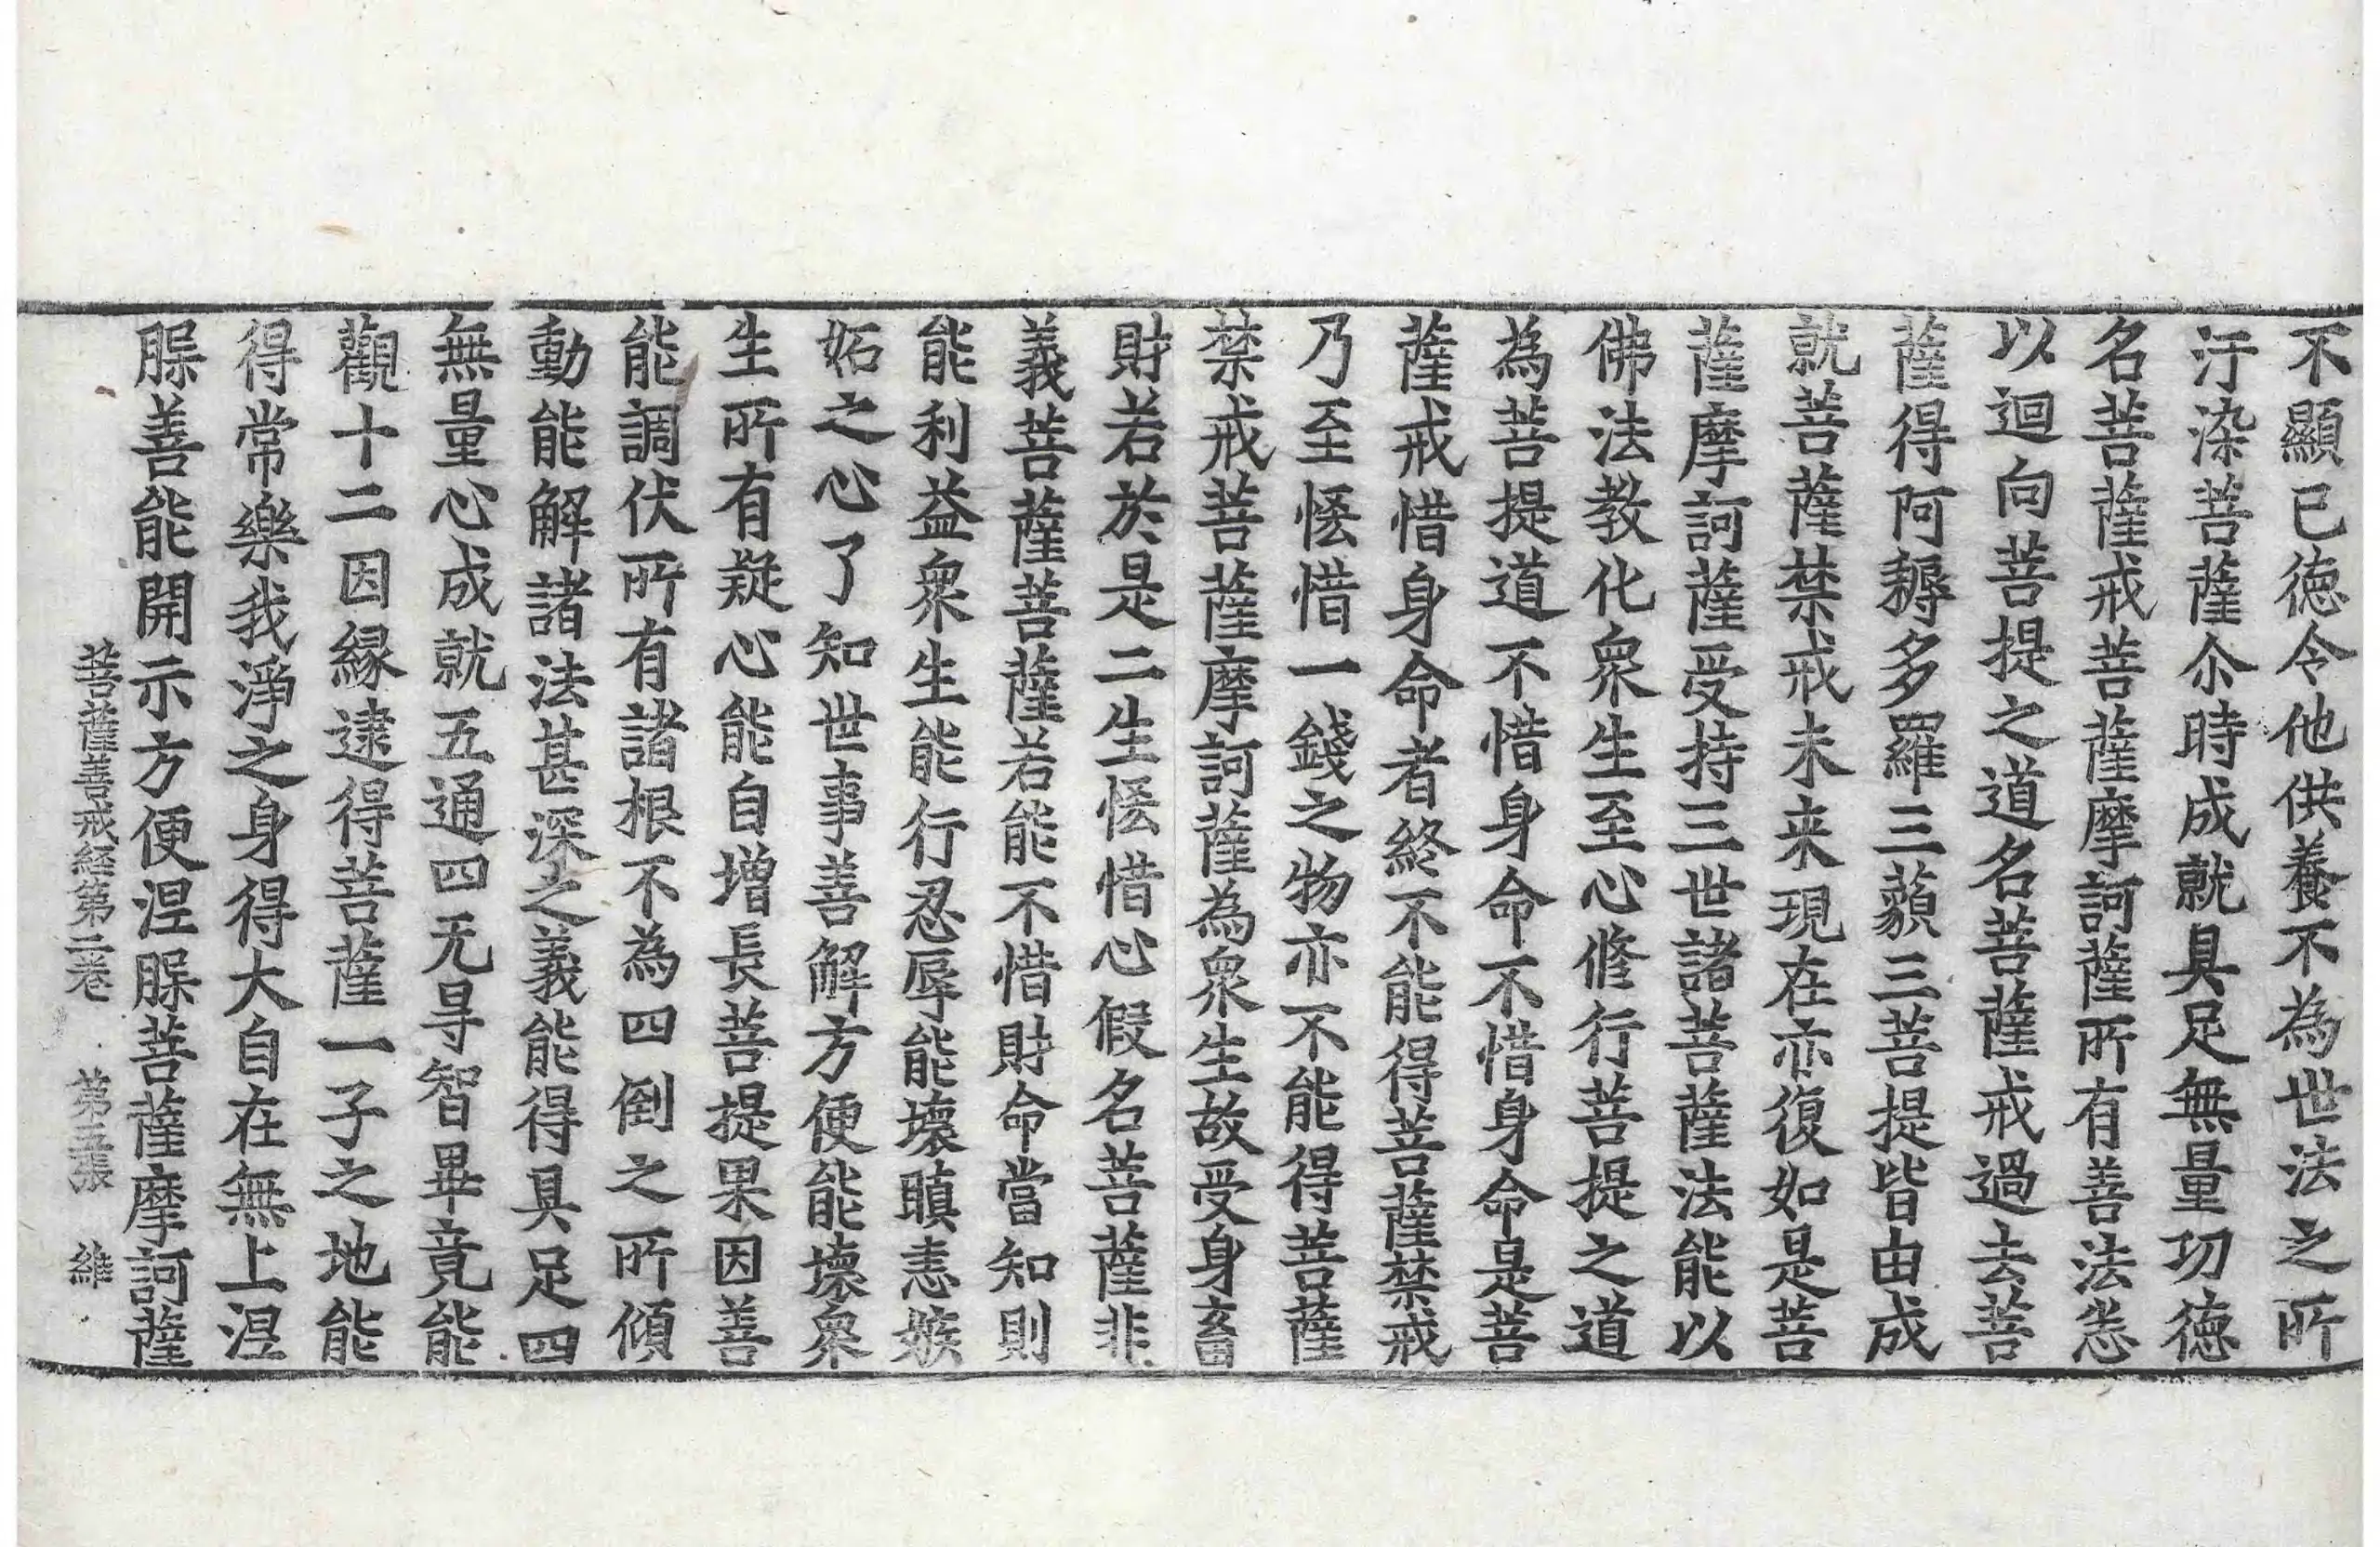 不顯已徳令他供養不為世法之所
汙染菩薩尒時成就具足無量功德
名菩薩戒菩薩摩訶薩所有善法悉
以迴向菩提之道名菩薩戒過去菩
薩得阿耨多羅三藐三菩提皆由成
就菩薩禁戒未来現在亦復如是菩
薩摩訶薩受持三世諸菩薩法能以
佛法教化衆生至心修行菩提之道
為菩提道不惜身命不惜身命是菩
薩戒惜身命者終不能得菩薩禁戒
乃至恡惜一錢之物亦不能得菩薩
禁戒菩薩摩訶薩為衆生故受身畜
財若於是二生恡惜心假名菩薩非
義菩薩菩薩若能不惜財命當知則
能利益衆生能行忍辱能壞瞋恚嫉
妬之心了知世事善解方便能壞衆
生所有疑心能自增長菩提果因善
能調伏所有諸根不為四倒之所傾
動能解諸法甚深之義能得具足四
無量心成就五通四无㝵智畢竟能
觀十二因縁逮得菩薩一子之地能
得常樂我淨之身得大自在無上涅
腺善能開示方便涅腺菩薩摩訶薩
菩薩善戒経第二巻 第五張 維